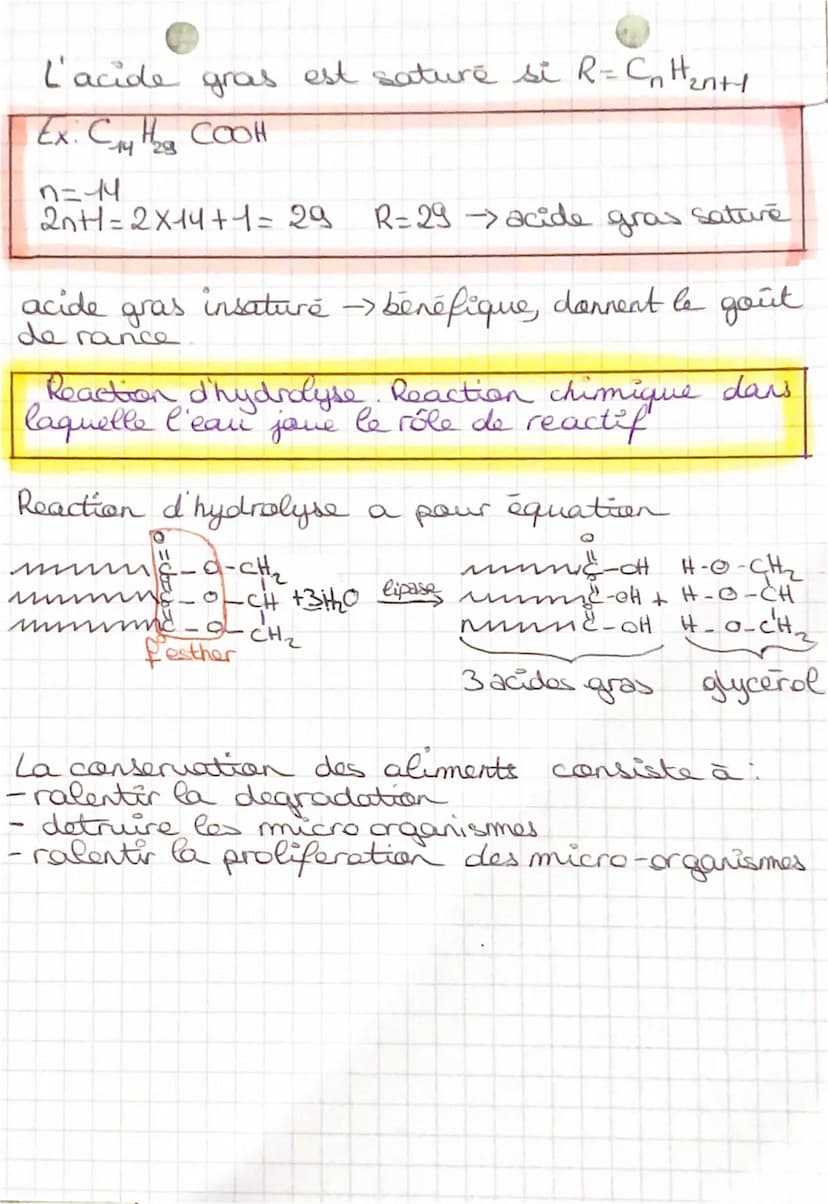 L'acide gras est saturé si R = CnH2n+1
Ex: C14 H29 COOH
n=14
2n+1 = 2×14+1 = 29 R=29 → acide gras saturé
acide gras insaturé → bénéfique, donnent le goût
de rance
Reaction d'hydrolyse. Reaction chimique dans
laquelle l'eau joue le rôle de reactif
Reaction d'hydrolyse a pour équation
O O
C-O-CH2 C-OH H-O-CH2
C-O-CH +3H2O lipase C-OH + H-O-CH
C-O-CH2 C-OH H-O-CH2
f°esther
3 acides gras glycérol
La conservation des aliments consiste à :
- ralentir la degradation
- detruire les micro organismes
- ralentir la proliferation des micro-organismes